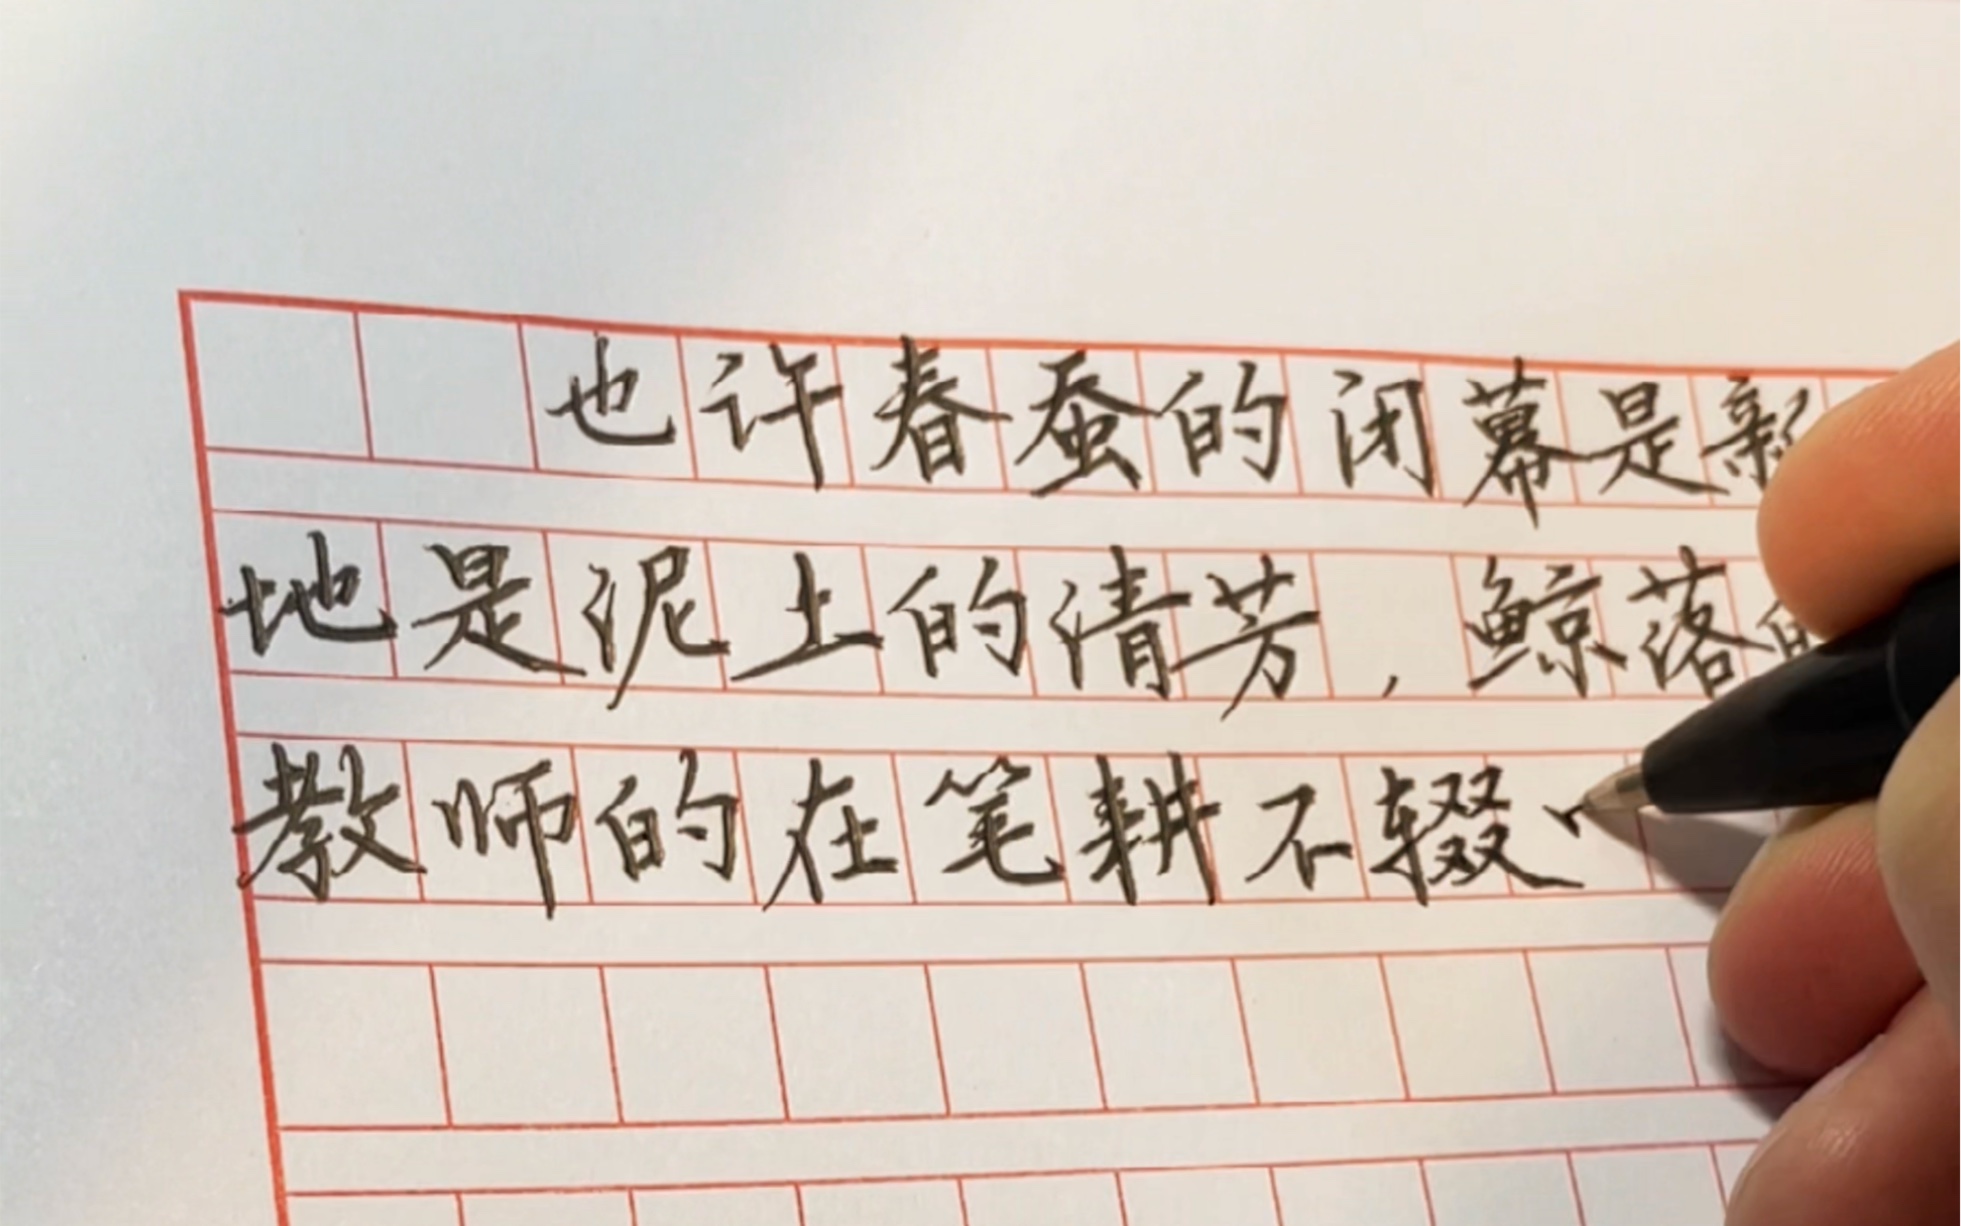 也许春蚕的闭幕是新
地是泥土的清芳，鲸落的
教师的在笔耕不辍